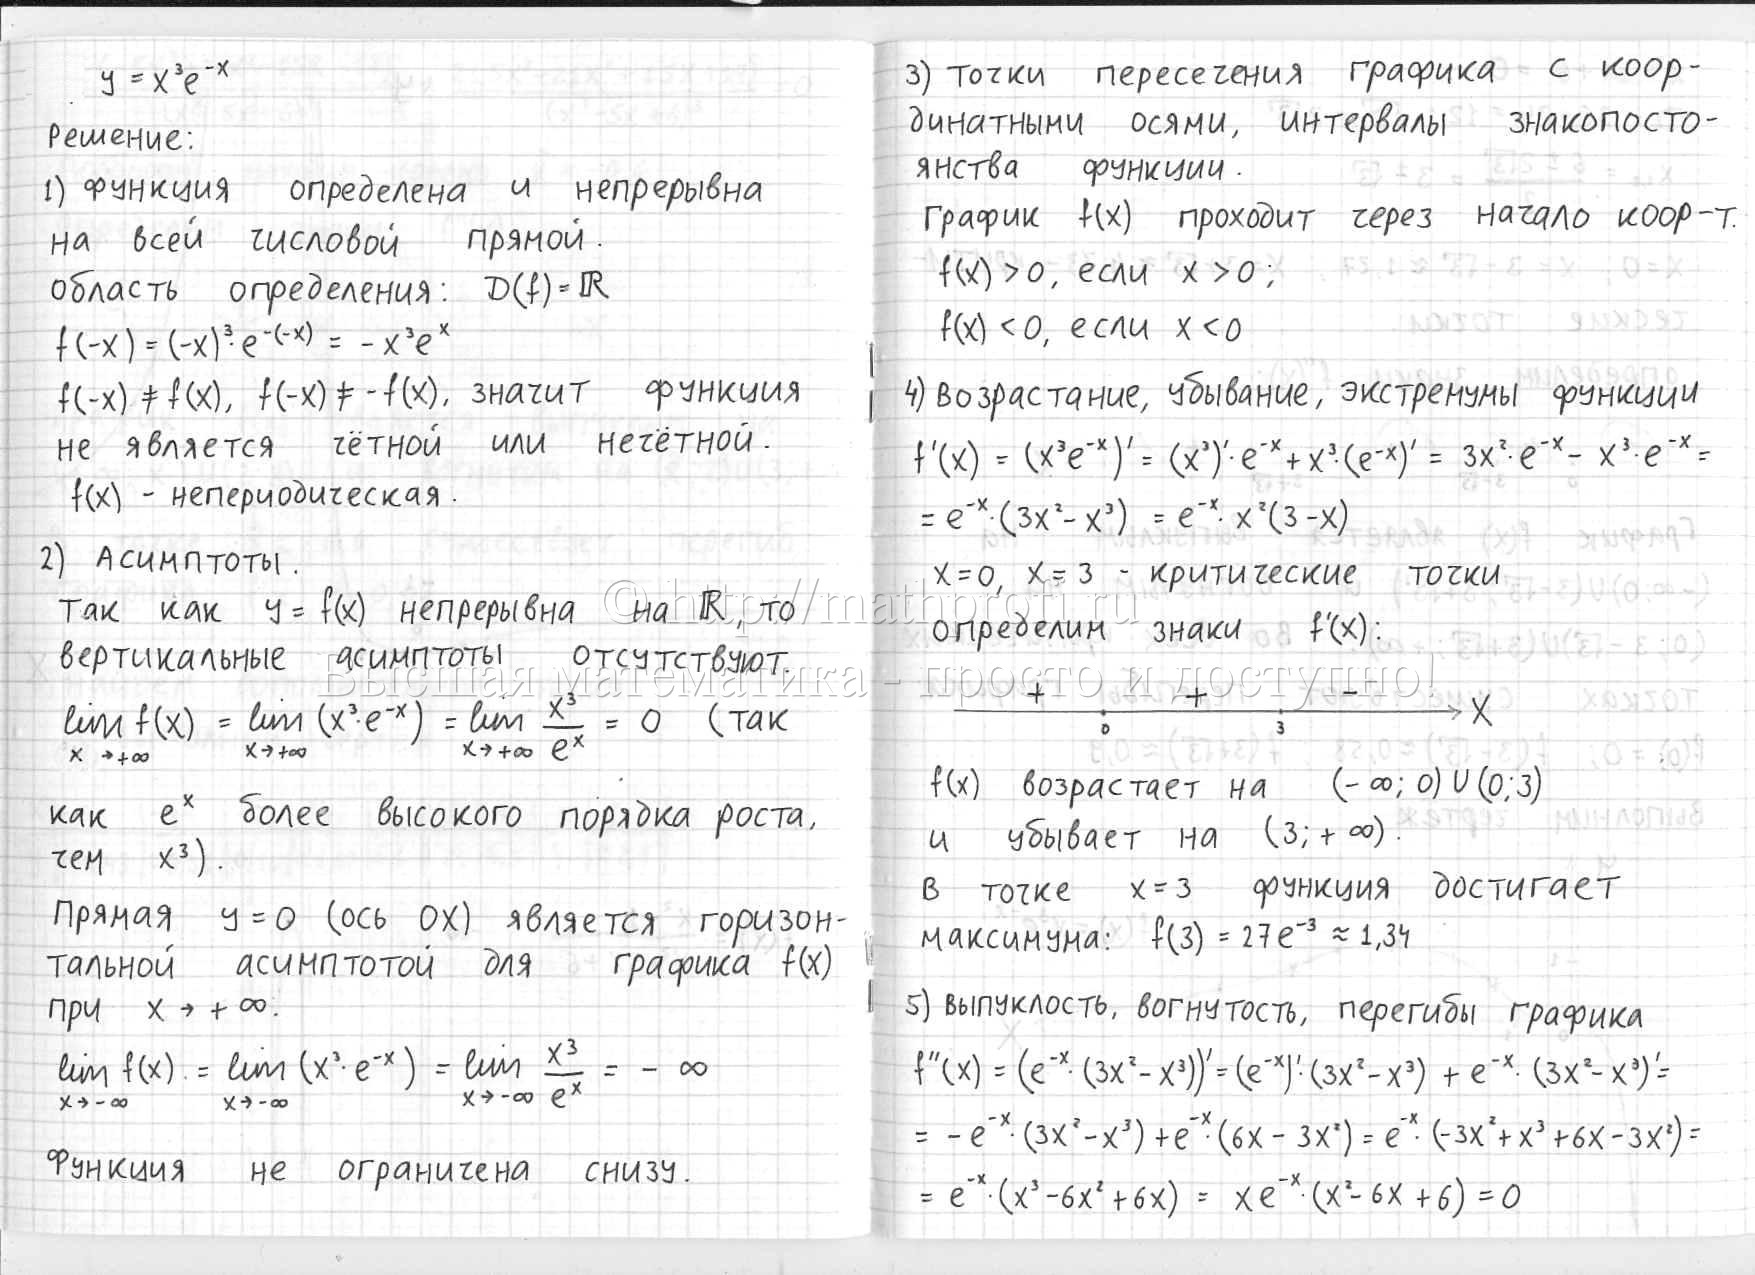 y = x³e⁻ˣ
Решение:
1) Функция определена и непрерывна
на всей числовой прямой.
область определения: D(f)=ℝ
f(-x) = (-x)³·e^(-(-x)) = -x³eˣ
f(-x) ≠ f(x), f(-x) ≠ -f(x), значит функция
не является чётной или нечётной.
f(x) - непериодическая.
2) Асимптоты.
Так как y = f(x) непрерывна на ℝ, то
вертикальные асимптоты отсутствуют.
lim_(x→+∞) f(x) = lim_(x→+∞) (x³·e⁻ˣ) = lim_(x→+∞) x³/eˣ = 0 (так
как eˣ более высокого порядка роста,
чем x³).
Прямая y=0 (ось ОХ) является горизон-
тальной асимптотой для графика f(x)
при x → +∞.
lim_(x→-∞) f(x) = lim_(x→-∞) (x³·e⁻ˣ) = lim_(x→-∞) x³/eˣ = -∞
Функция не ограничена снизу.
3) Точки пересечения графика с коор-
динатными осями, интервалы знакопосто-
янства функции.
График f(x) проходит через начало коор-т.
f(x) > 0, если x > 0;
f(x) < 0, если x < 0
4) Возрастание, убывание, экстремумы функции
f'(x) = (x³e⁻ˣ)' = (x³)'·e⁻ˣ + x³·(e⁻ˣ)' = 3x²·e⁻ˣ - x³·e⁻ˣ =
= e⁻ˣ·(3x² - x³) = e⁻ˣ·x²(3-x)
x=0, x=3 - критические точки
определим знаки f'(x):
+ + -
0 3 X
f(x) возрастает на (-∞; 0) U (0; 3)
и убывает на (3; +∞).
В точке x=3 функция достигает
максимума: f(3) = 27e⁻³ ≈ 1,34
5) Выпуклость, вогнутость, перегибы графика
f''(x) = (e⁻ˣ·(3x² - x³))' = (e⁻ˣ)'·(3x² - x³) + e⁻ˣ·(3x² - x³)' =
= -e⁻ˣ·(3x² - x³) + e⁻ˣ·(6x - 3x²) = e⁻ˣ·(-3x² + x³ + 6x - 3x²) =
= e⁻ˣ·(x³ - 6x² + 6x) = xe⁻ˣ·(x² - 6x + 6) = 0
© http://mathprofi.ru
Высшая математика - просто и доступно!